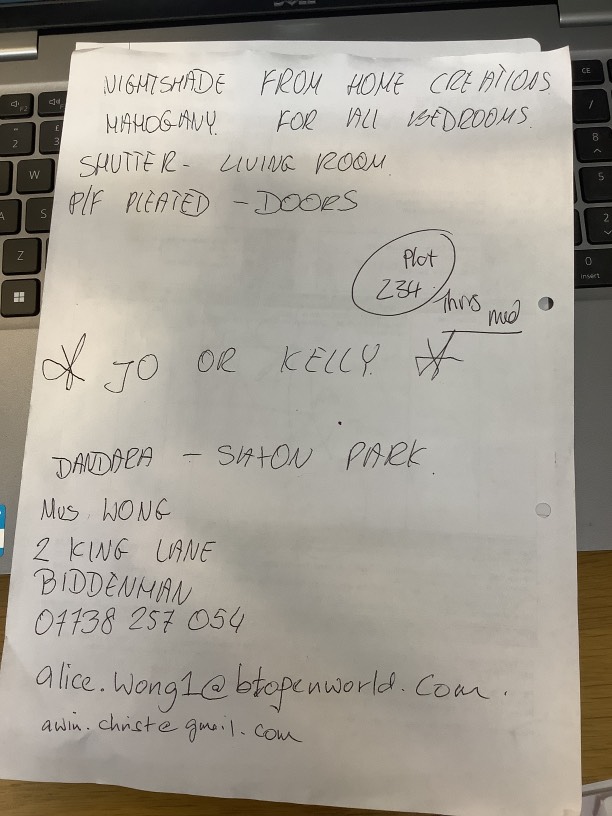 NIGHTSHADE FROM HOME CREATIONS
MAHOGANY. FOR ALL BEDROOMS.
SHUTTER - LIVING ROOM.
P/F PLEATED - DOORS
Plot
234
thrs
med
JO OR KELLY.
DANDARA - PARK.
Mrs WONG
2 KING LANE
BIDDENMAN
07738 257 054
alice.wong1@btopenworld.com.
awin.christ@gmail.com
CE
F2
2
3
W
A
S
Z
/
8
5
2
0
Insert